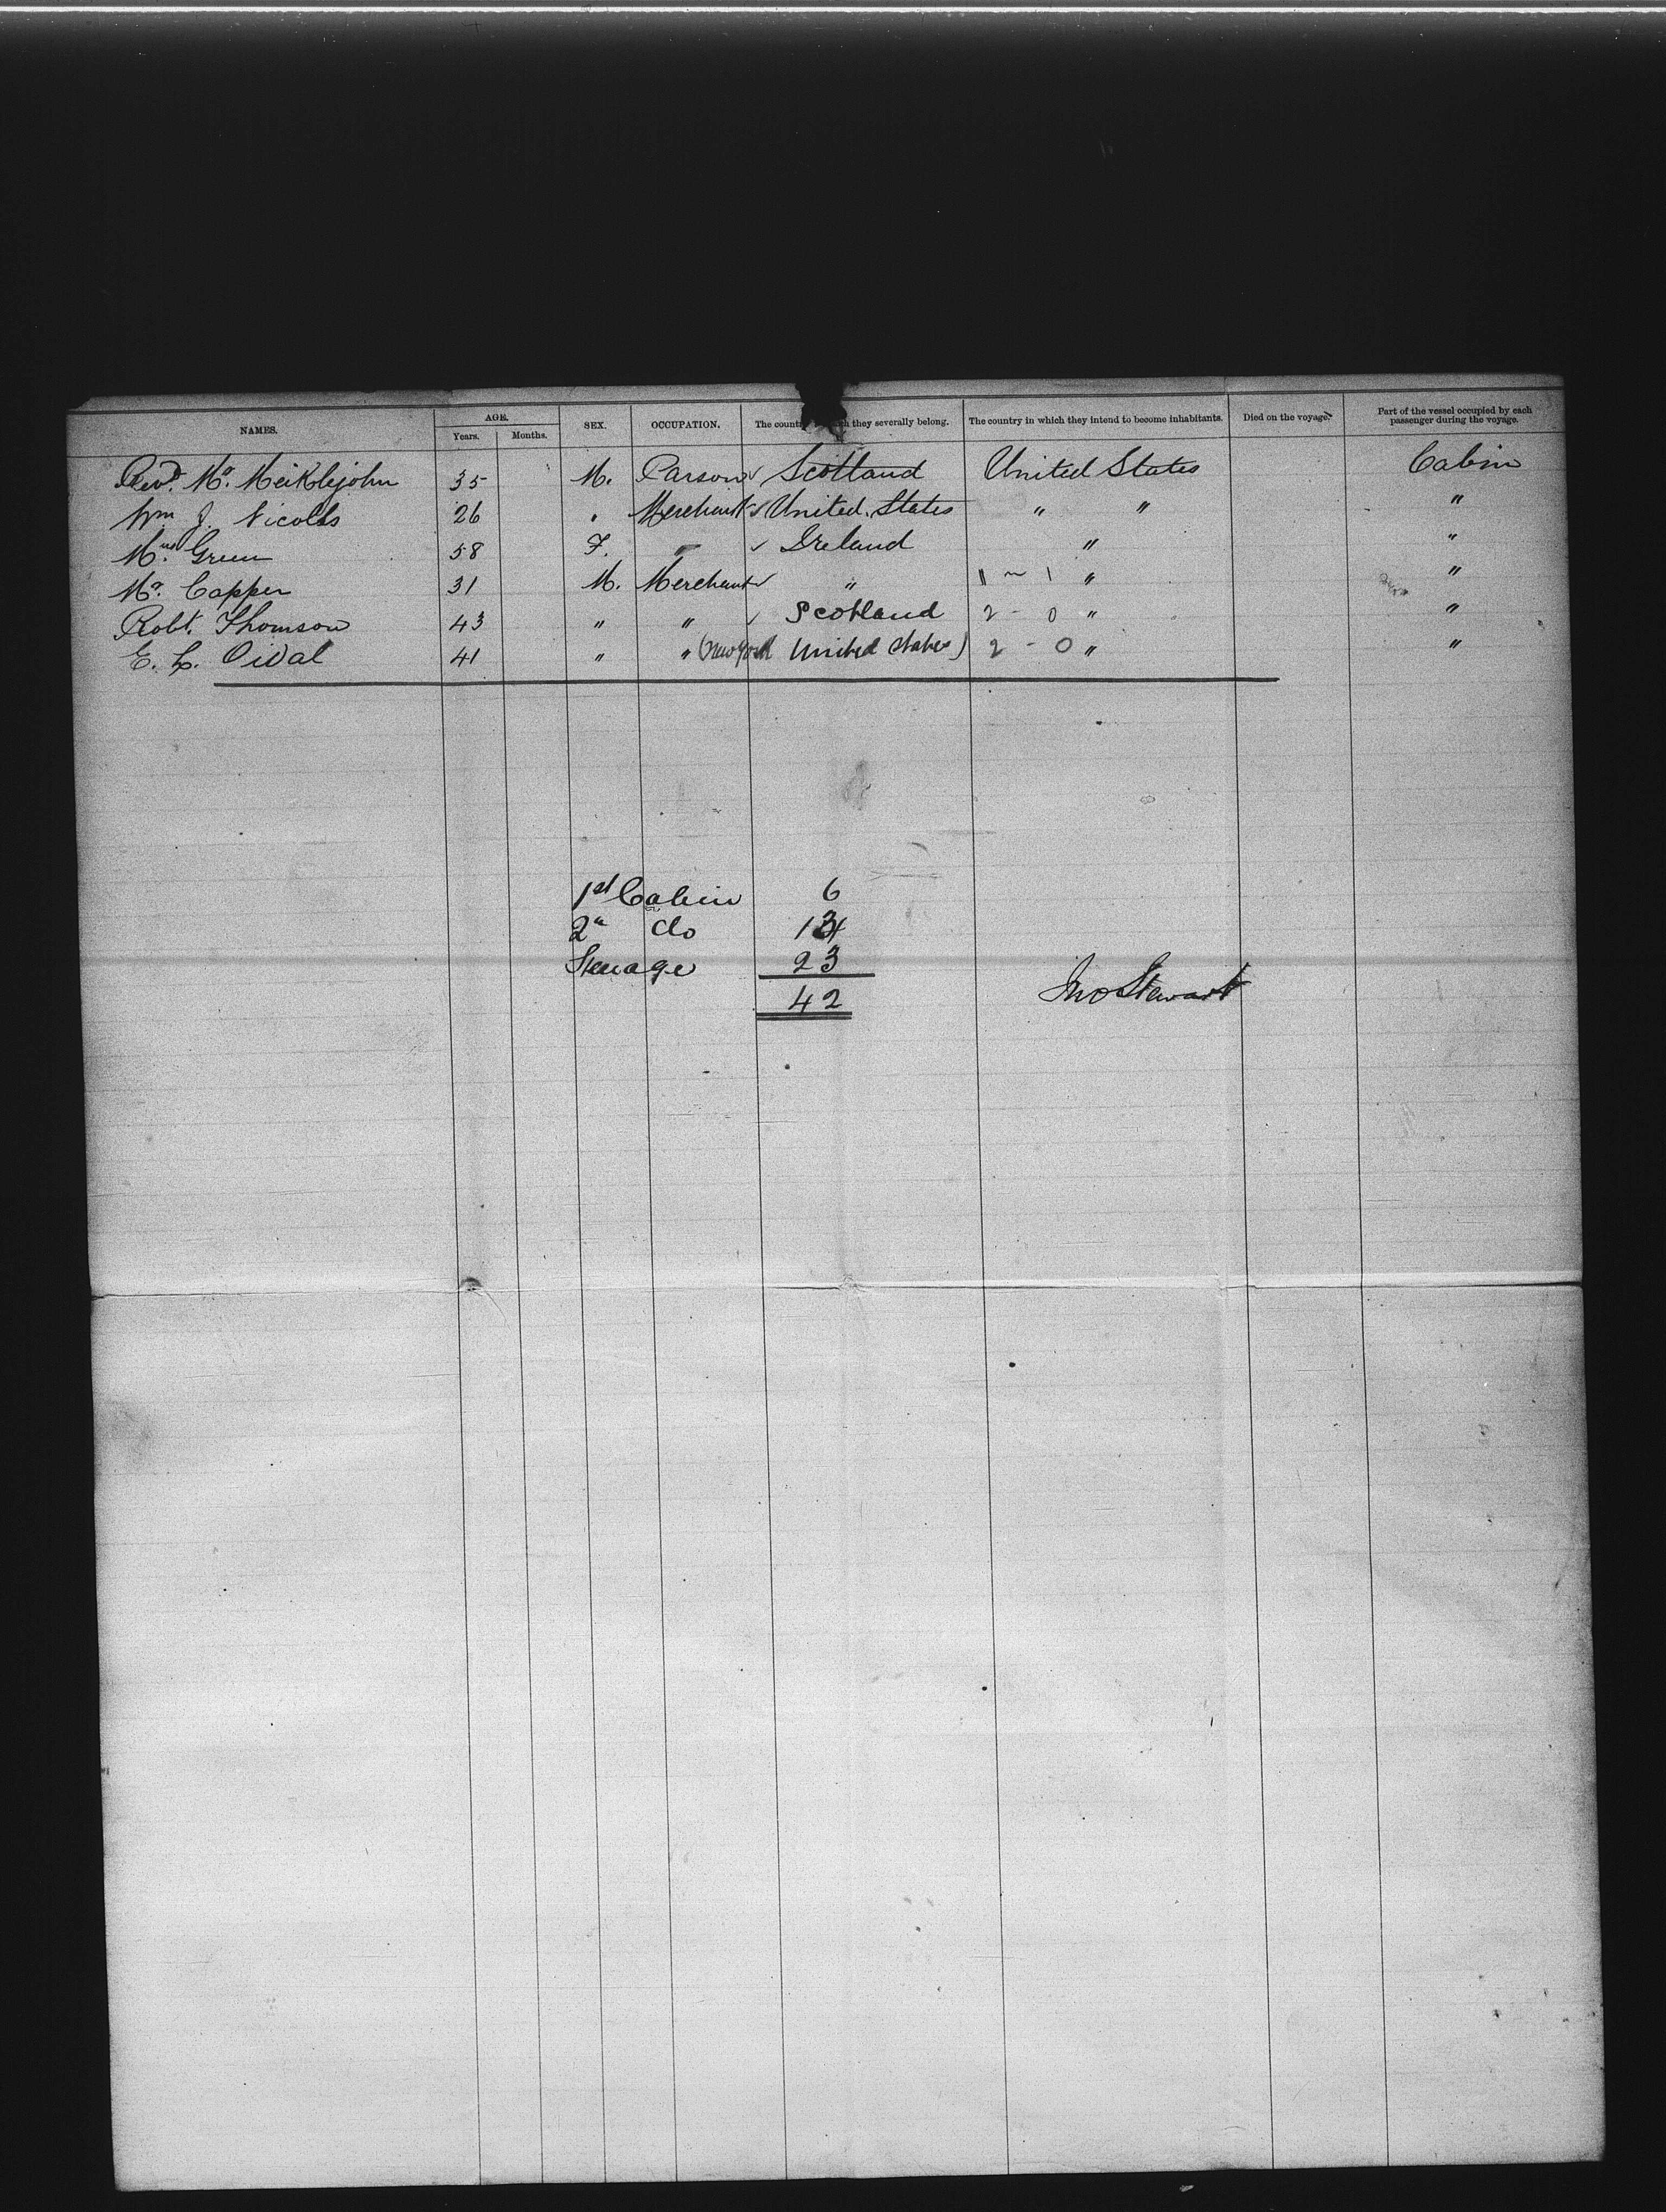 NAMES. AGE. Years. Months. SEX. OCCUPATION. The country they severally belong. The country in which they intend to become inhabitants. Died on the voyage. Part of the vessel occupied by each passenger during the voyage.
Revd. Mr. Meiklejohn 35 M. Parson ✓ Scotland United States Cabin
Wm J. Nicolls 26 " Merchant ✓ United States " " "
Mrs Green 58 F. " ✓ Ireland " "
Mr. Capper 31 M. Merchant ✓ " 11 ~ 1 " "
Robt. Thomson 43 " " ✓ Scotland 2 - 0 " "
E. L. 41 " " (New York United States) 2 - 0 " "
1st Cabin 6
2n do 13
Steerage 23
42
Jno Stewart